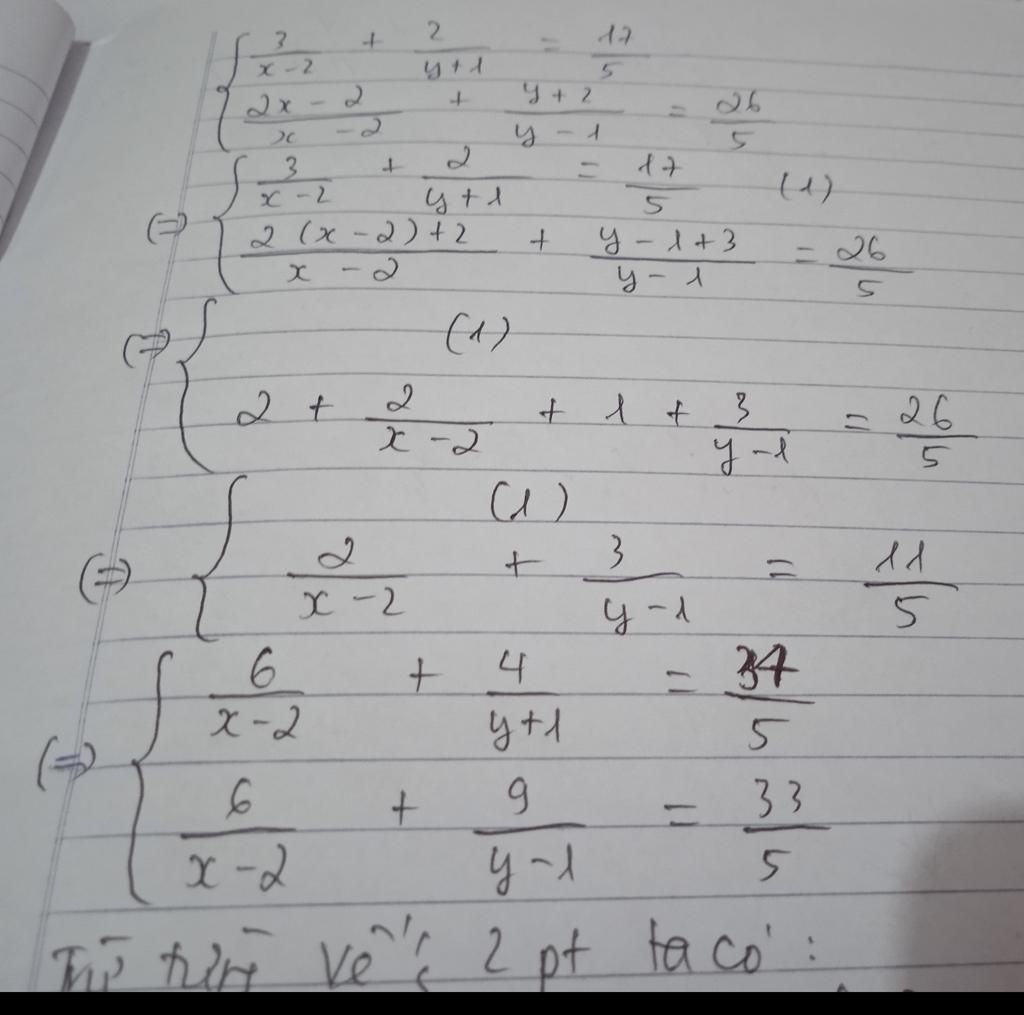 { 3/(x-2) + 2/(y+1) = 17/5
{ (2x-2)/(x-2) + (y+2)/(y-1) = 26/5
(=) { 3/(x-2) + 2/(y+1) = 17/5 (1)
{ (2(x-2)+2)/(x-2) + (y-1+3)/(y-1) = 26/5
(=) { (1)
{ 2 + 2/(x-2) + 1 + 3/(y-1) = 26/5
(=) { (1)
{ 2/(x-2) + 3/(y-1) = 11/5
(=) { 6/(x-2) + 4/(y+1) = 34/5
{ 6/(x-2) + 9/(y-1) = 33/5
Trừ từng vế 2 pt ta có: